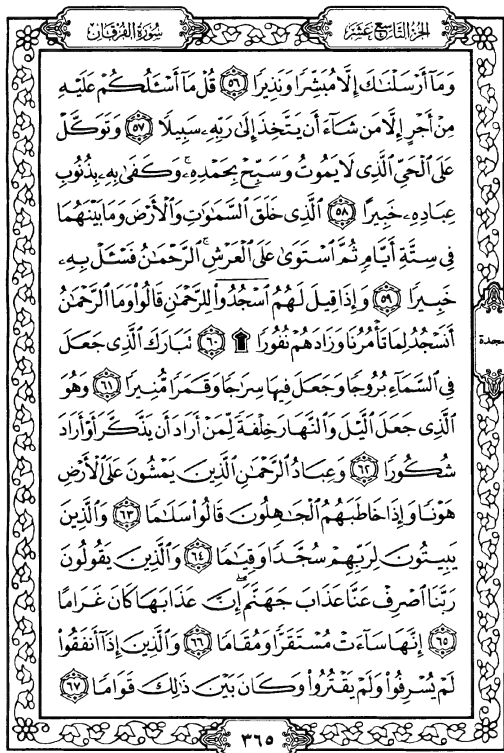 سُورَةُ الفُرْقَان
الجُزْءُ التَّاسِعُ عَشَرَ
وَمَآ أَرْسَلْنَٰكَ إِلَّا مُبَشِّرًا وَنَذِيرًا ٥٦ قُلْ مَآ أَسْـَٔلُكُمْ عَلَيْهِ
مِنْ أَجْرٍ إِلَّا مَن شَآءَ أَن يَتَّخِذَ إِلَىٰ رَبِّهِۦ سَبِيلًا ٥٧ وَتَوَكَّلْ
عَلَى ٱلْحَىِّ ٱلَّذِى لَا يَمُوتُ وَسَبِّحْ بِحَمْدِهِۦ ۚ وَكَفَىٰ بِهِۦ بِذُنُوبِ
عِبَادِهِۦ خَبِيرًا ٥٨ ٱلَّذِى خَلَقَ ٱلسَّمَٰوَٰتِ وَٱلْأَرْضَ وَمَا بَيْنَهُمَا
فِى سِتَّةِ أَيَّامٍ ثُمَّ ٱسْتَوَىٰ عَلَى ٱلْعَرْشِ ۚ ٱلرَّحْمَٰنُ فَسْـَٔلْ بِهِۦ
خَبِيرًا ٥٩ وَإِذَا قِيلَ لَهُمُ ٱسْجُدُوا۟ لِلرَّحْمَٰنِ قَالُوا۟ وَمَا ٱلرَّحْمَٰنُ
أَنَسْجُدُ لِمَا تَأْمُرُنَا وَزَادَهُمْ نُفُورًا ۩ ٦٠ تَبَارَكَ ٱلَّذِى جَعَلَ
فِى ٱلسَّمَآءِ بُرُوجًا وَجَعَلَ فِيهَا سِرَٰجًا وَقَمَرًا مُّنِيرًا ٦١ وَهُوَ
ٱلَّذِى جَعَلَ ٱلَّيْلَ وَٱلنَّهَارَ خِلْفَةً لِّمَنْ أَرَادَ أَن يَذَّكَّرَ أَوْ أَرَادَ
شُكُورًا ٦٢ وَعِبَادُ ٱلرَّحْمَٰنِ ٱلَّذِينَ يَمْشُونَ عَلَى ٱلْأَرْضِ
هَوْنًا وَإِذَا خَاطَبَهُمُ ٱلْجَٰهِلُونَ قَالُوا۟ سَلَٰمًا ٦٣ وَٱلَّذِينَ
يَبِيتُونَ لِرَبِّهِمْ سُجَّدًا وَقِيَٰمًا ٦٤ وَٱلَّذِينَ يَقُولُونَ
رَبَّنَا ٱصْرِفْ عَنَّا عَذَابَ جَهَنَّمَ ۖ إِنَّ عَذَابَهَا كَانَ غَرَامًا
٦٥ إِنَّهَا سَآءَتْ مُسْتَقَرًّا وَمُقَامًا ٦٦ وَٱلَّذِينَ إِذَآ أَنفَقُوا۟
لَمْ يُسْرِفُوا۟ وَلَمْ يَقْتُرُوا۟ وَكَانَ بَيْنَ ذَٰلِكَ قَوَامًا ٦٧
سجدة
٣٦٥